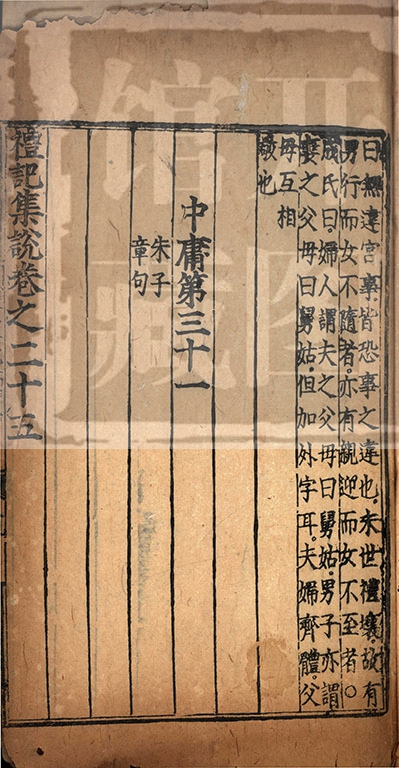 曰無違宮事皆恐事之違也。末世禮壞。故有
男行而女不隨者。亦有親迎而女不至者。○
成氏曰。婦人謂夫之父母曰舅姑。男子亦謂
妻之父母曰舅姑。但加外字耳。夫婦齊體。父
母互相
敬也
中庸第三十一
朱子
章句
禮記集說卷之二十五
图
馆藏